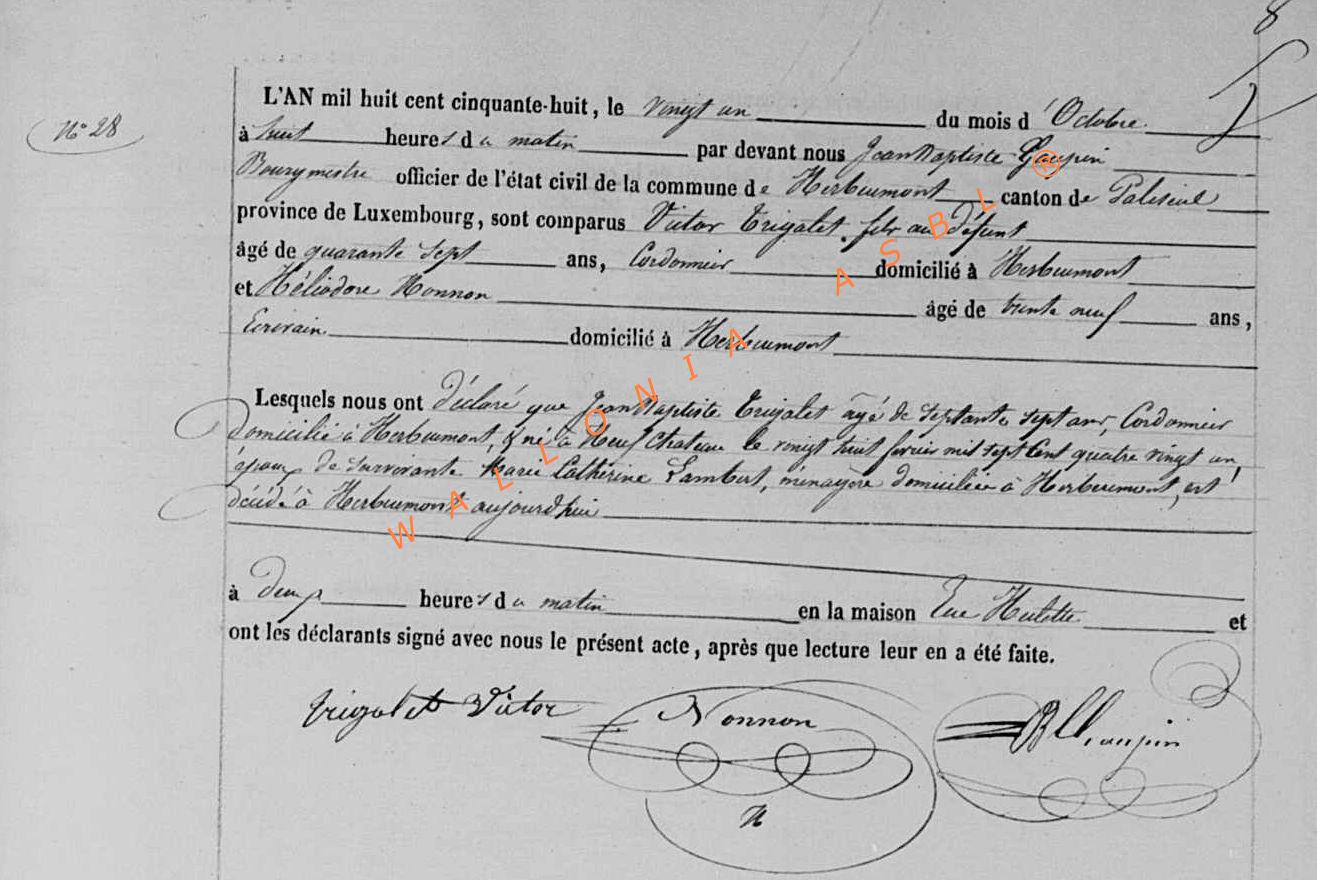 8
N° 28
L'AN mil huit cent cinquante-huit, le vingt un du mois d'Octobre
à huit heures du matin par devant nous Jean Baptiste
Bourgmestre officier de l'état civil de la commune de Herbeumont canton de Paliseul
province de Luxembourg, sont comparus Victor Trigalet, fils au défunt
âgé de quarante sept ans, Cordonnier domicilié à Herbeumont
et Héliodore Nonnon âgé de trente neuf ans,
Ecrivain domicilié à Herbeumont
Lesquels nous ont déclaré que Jean Baptiste Trigalet âgé de septante sept ans, Cordonnier
domicilié à Herbeumont, & né à Neufchateau le vingt huit février mil sept cent quatre vingt un,
époux de survivante Marie Cathérine Lambert, ménagère domiciliée à Herbeumont, est
décédé à Herbeumont aujourd'hui
à deux heures du matin en la maison Rue Hulette et
ont les déclarants signé avec nous le présent acte, après que lecture leur en a été faite.
Trigalet Victor Nonnon
N
WALLONIA ASBL ®